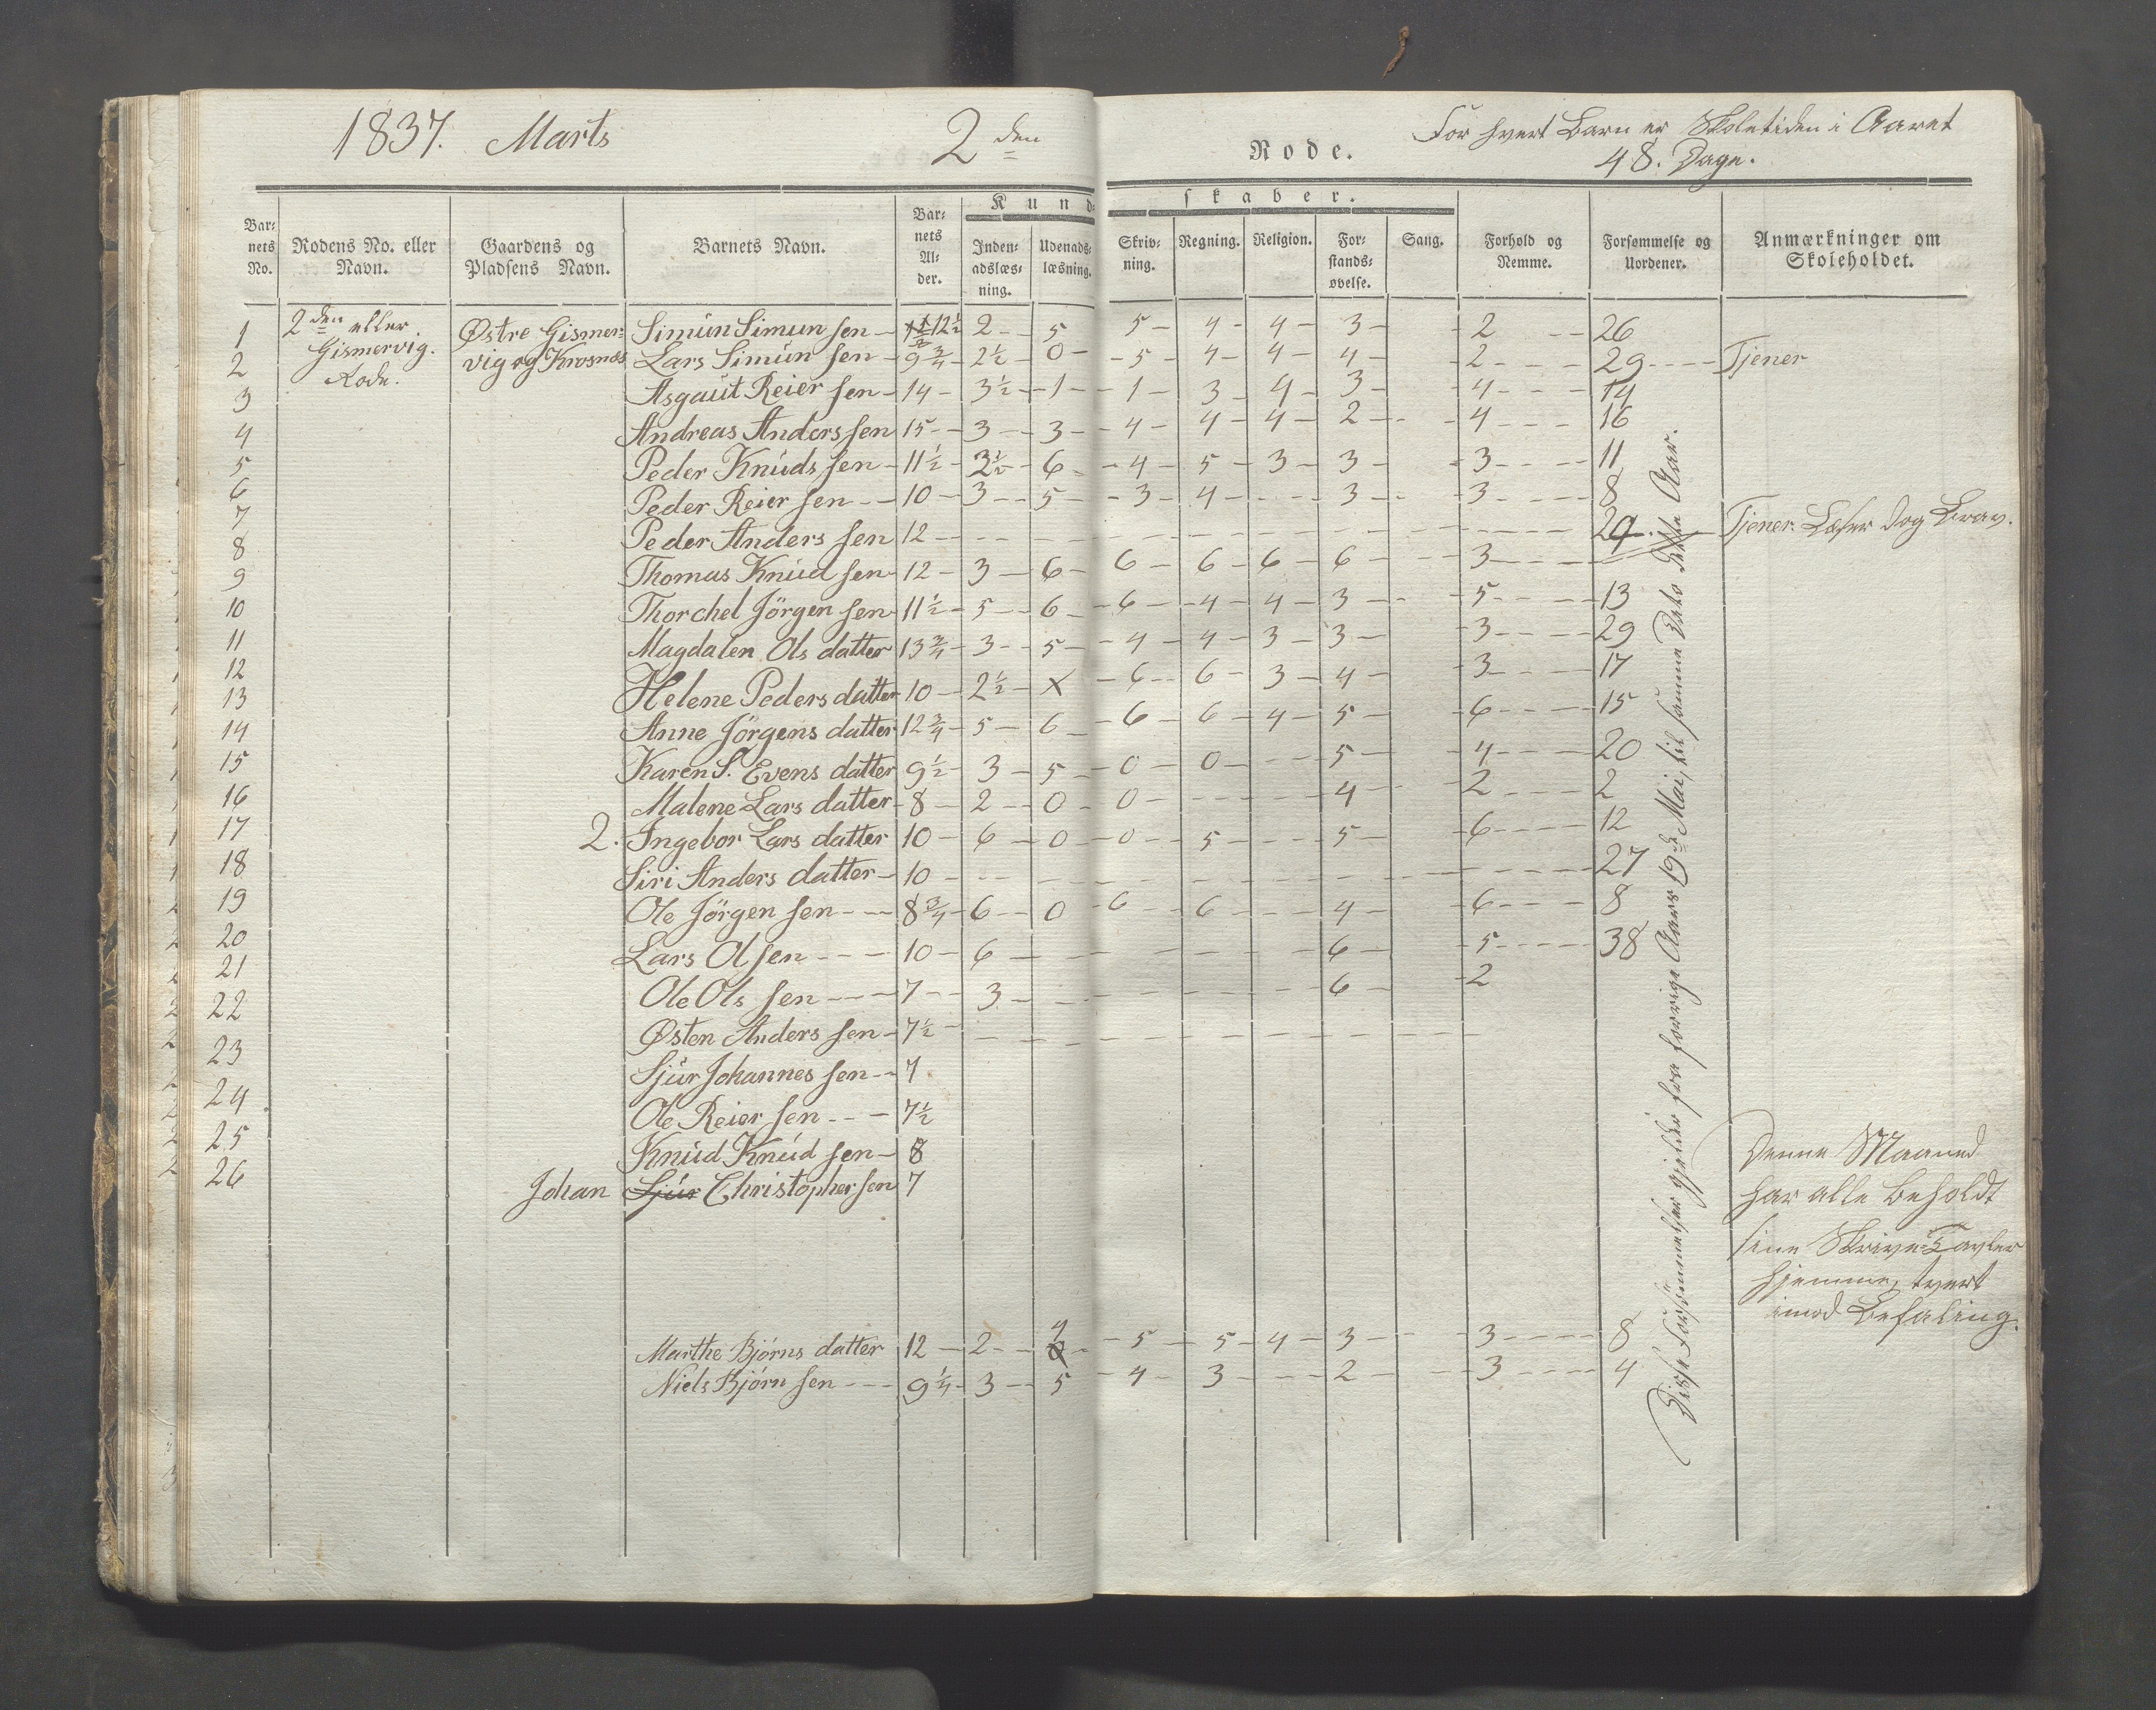 1837. Marts 2den Rode. For hvert Barn er Skoletiden i Aaret
48. Dage.
Kundskaber.
Barnets No. | Rodens No. eller Navn. | Gaardens og Pladsens Navn. | Barnets Navn. | Barnets Alder. | Indenadslæsning. | Udenadslæsning. | Skrivning. | Regning. | Religion. | Forstandsøvelse. | Sang. | Forhold og Nemme. | Forsømmelse og Uordener. | Anmærkninger om Skoleholdet.
1 2den eller Østre Gismer- Simun Simunsen 12½ 2 5 5 4 4 3 2 26
2 Gismervig. vig og Krosnæs Lars Simunsen 9¾ 2½ 0 5 4 4 4 2 29 Tjener
3 Rode. Asgaut Reiersen 14 3½ 1 1 3 4 3 4 14
4 Andreas Anderssen 15 3 3 4 4 4 2 4 16
5 Peder Knudssen 11½ 3½ 6 4 5 3 3 3 11
6 Peder Reiersen 10 3 5 3 4 3 3 8
7 Peder Anderssen 12 29 Tjener. Læser dog Brav.
8 Thomas Knudsen 12 3 6 6 6 6 6 3
9 Thorchel Jörgensen 11½ 5 6 6 4 4 3 5 13
10 Magdalen Olsdatter 13¾ 3 5 4 4 3 3 3 29
11 Helene Pedersdatter 10 2½ x 6 6 3 4 3 17
12 Anne Jörgensdatter 12¾ 5 6 6 6 4 5 6 15
13 Karen S. Evensdatter 9½ 3 5 0 0 5 4 20
14 Malene Larsdatter 8 2 0 0 4 2 2
15 2. Ingebor Larsdatter 10 6 0 0 5 5 6 12
16 Siri Andersdatter 10 27
17 Ole Jörgensen 8¾ 6 0 6 6 4 6 8
18 Lars Olsen 10 6 6 5 38
19 Ole Olssen 7 3 6 2
20 Østen Anderssen 7½
21 Sjur Johannessen 7
22 Ole Reiersen 7½
23 Knud Knudsen 8
24 Johan Sjur Christophersen 7
25
26
Marthe Björnsdatter 12 2 4 5 5 4 3 3 8
Niels Björnsen 9¼ 3 5 4 3 2 3 4
Disse Forsömmelser gjelder fra forrige Aars 19de Mai, til samme Dato dette Aar.
Denne Maaned
har alle beholdt
sine Skrive-Tavler
hjemme, tvert
imod Befaling.